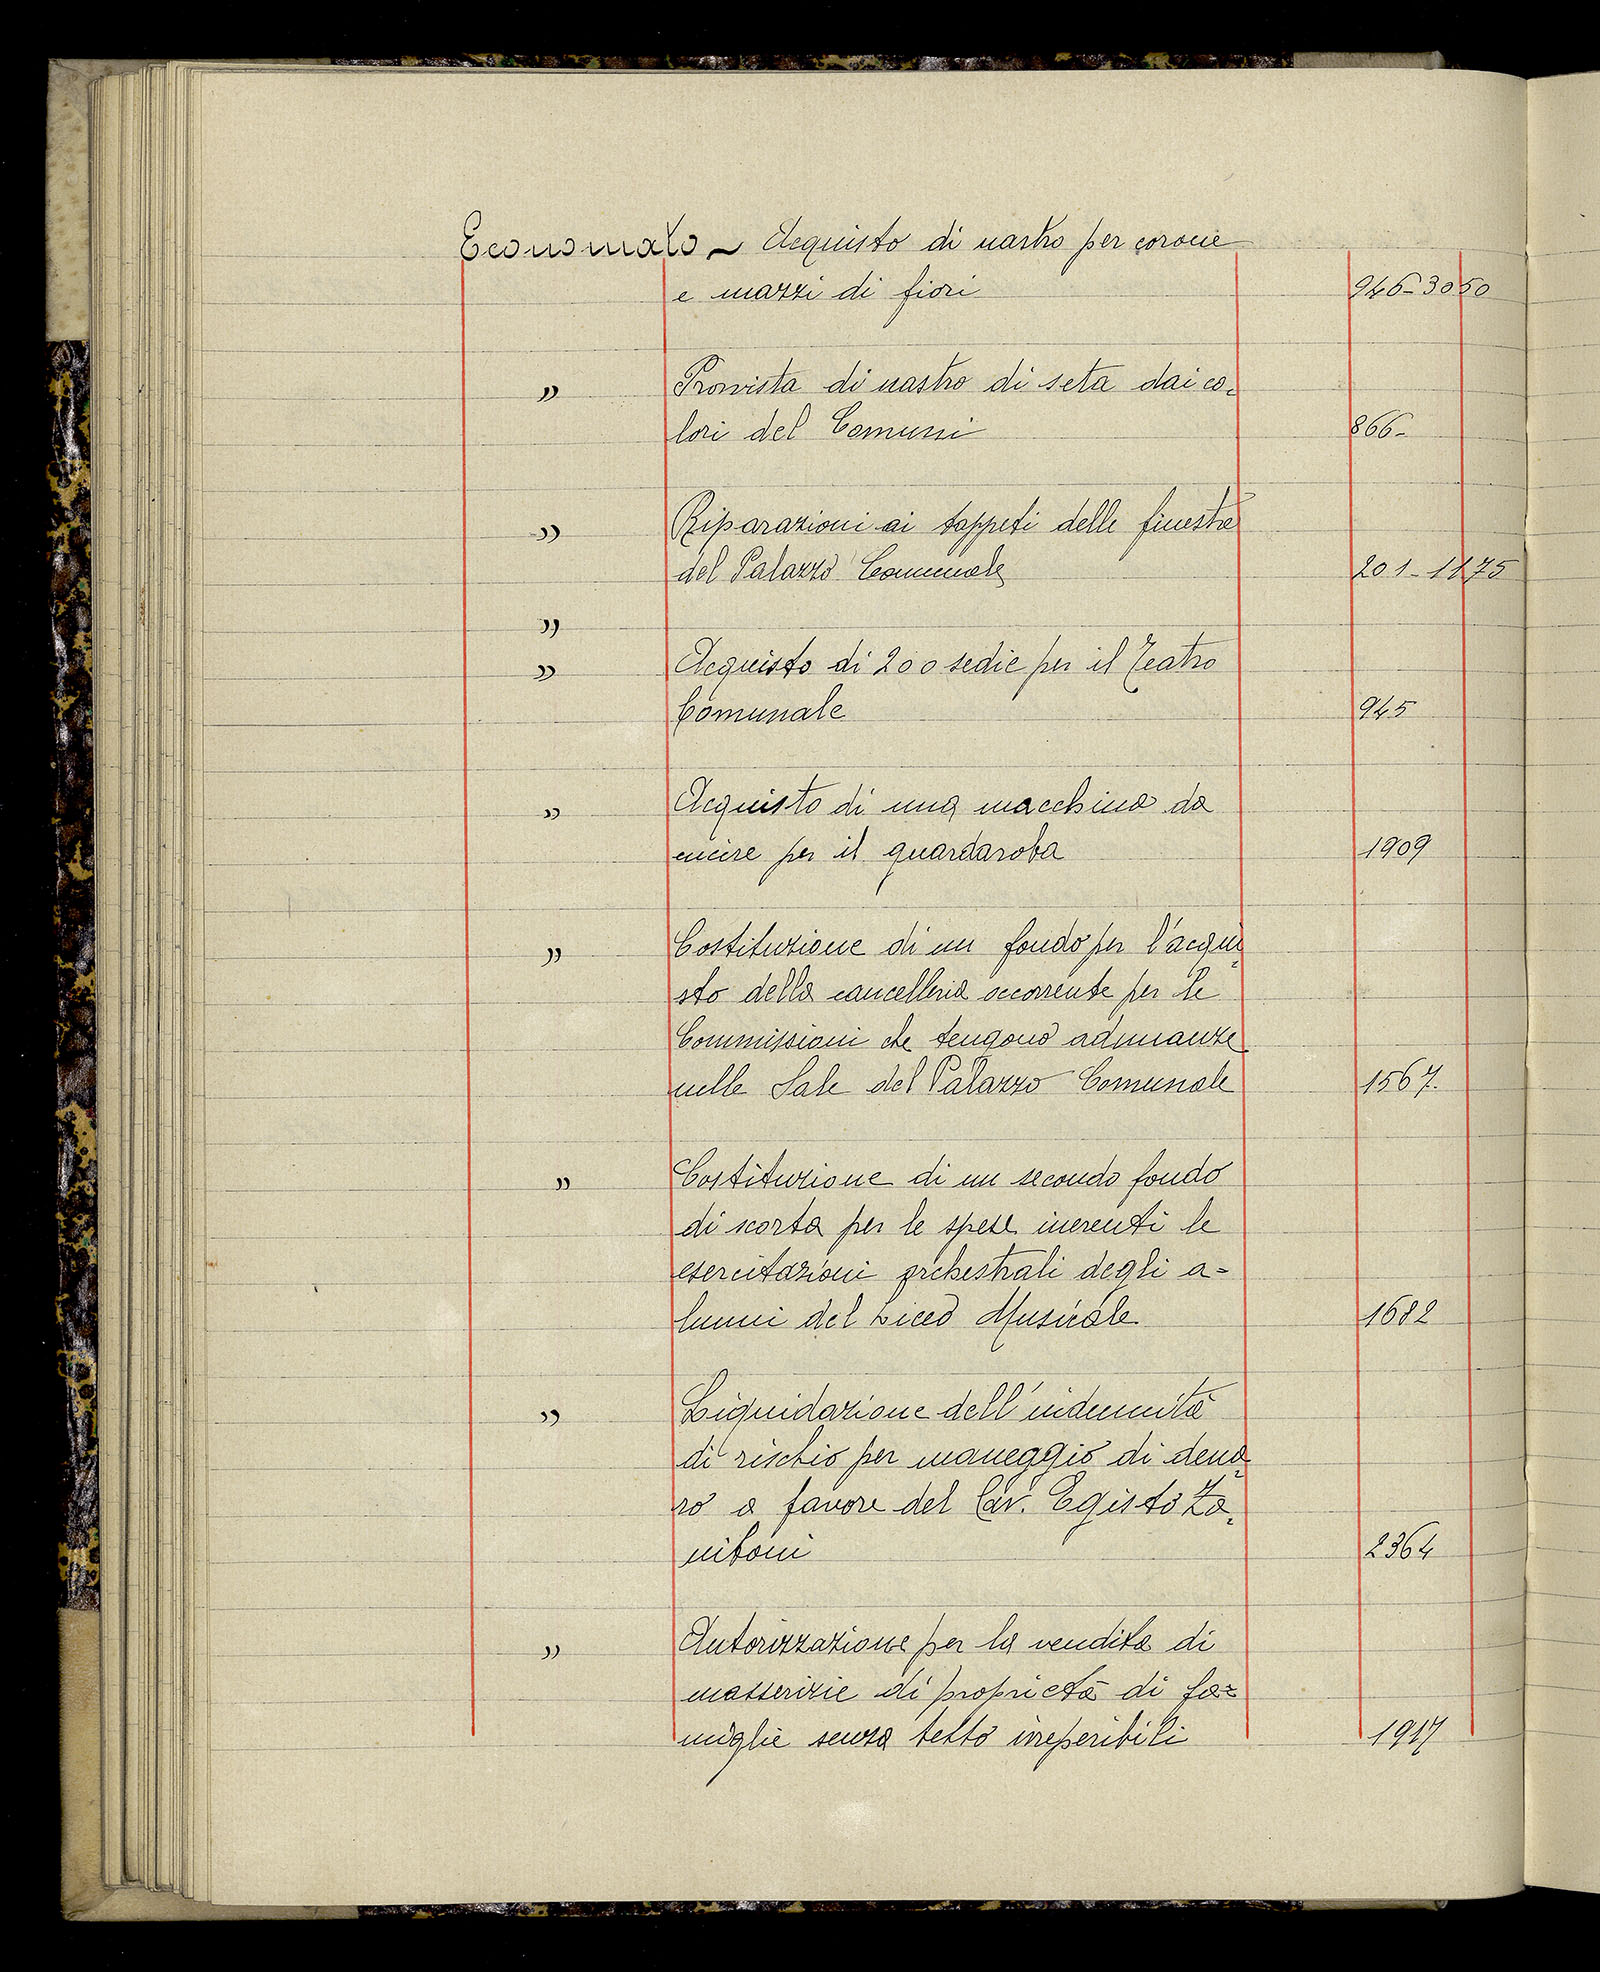 Economato ~ Acquisto di nastro per corone
e mazzi di fiori 946-3050
" Provvista di nastro di seta dai co-
lori del Comuni 866-
" Riparazioni ai tappeti delle finestre
del Palazzo Comunale 201-1175
"
" Acquisto di 200 sedie per il Teatro
Comunale 945
" Acquisto di una macchina da
cucire per il guardaroba 1909
" Costituzione di un fondo per l'acqui-
sto della cancelleria occorrente per le
Commissioni che tengono adunanze
nelle Sale del Palazzo Comunale 1567.
" Costituzione di un secondo fondo
di scorta per le spese inerenti le
esercitazioni orchestrali degli a-
lunni del Liceo Musicale 1682
" Liquidazione dell'indennità
di rischio per maneggio di dena-
ro a favore del Cav. Egisto Za-
niboni 2364
" Autorizzazione per la vendita di
masserizie di proprietà di fa=
miglie senza tetto irreperibili 1917